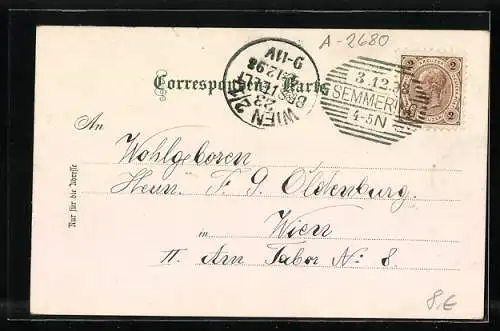 A-2680
Correspondenz-Karte
WIEN 2/1
BESTELLT
9-11V
3.12.
SEMMERING
4-5N
2
2
An
Wohlgeboren
Herrn F. G. Oldenburg.
in Wien
II. Am Tabor No: 8.
Nur für die Adresse
8,€